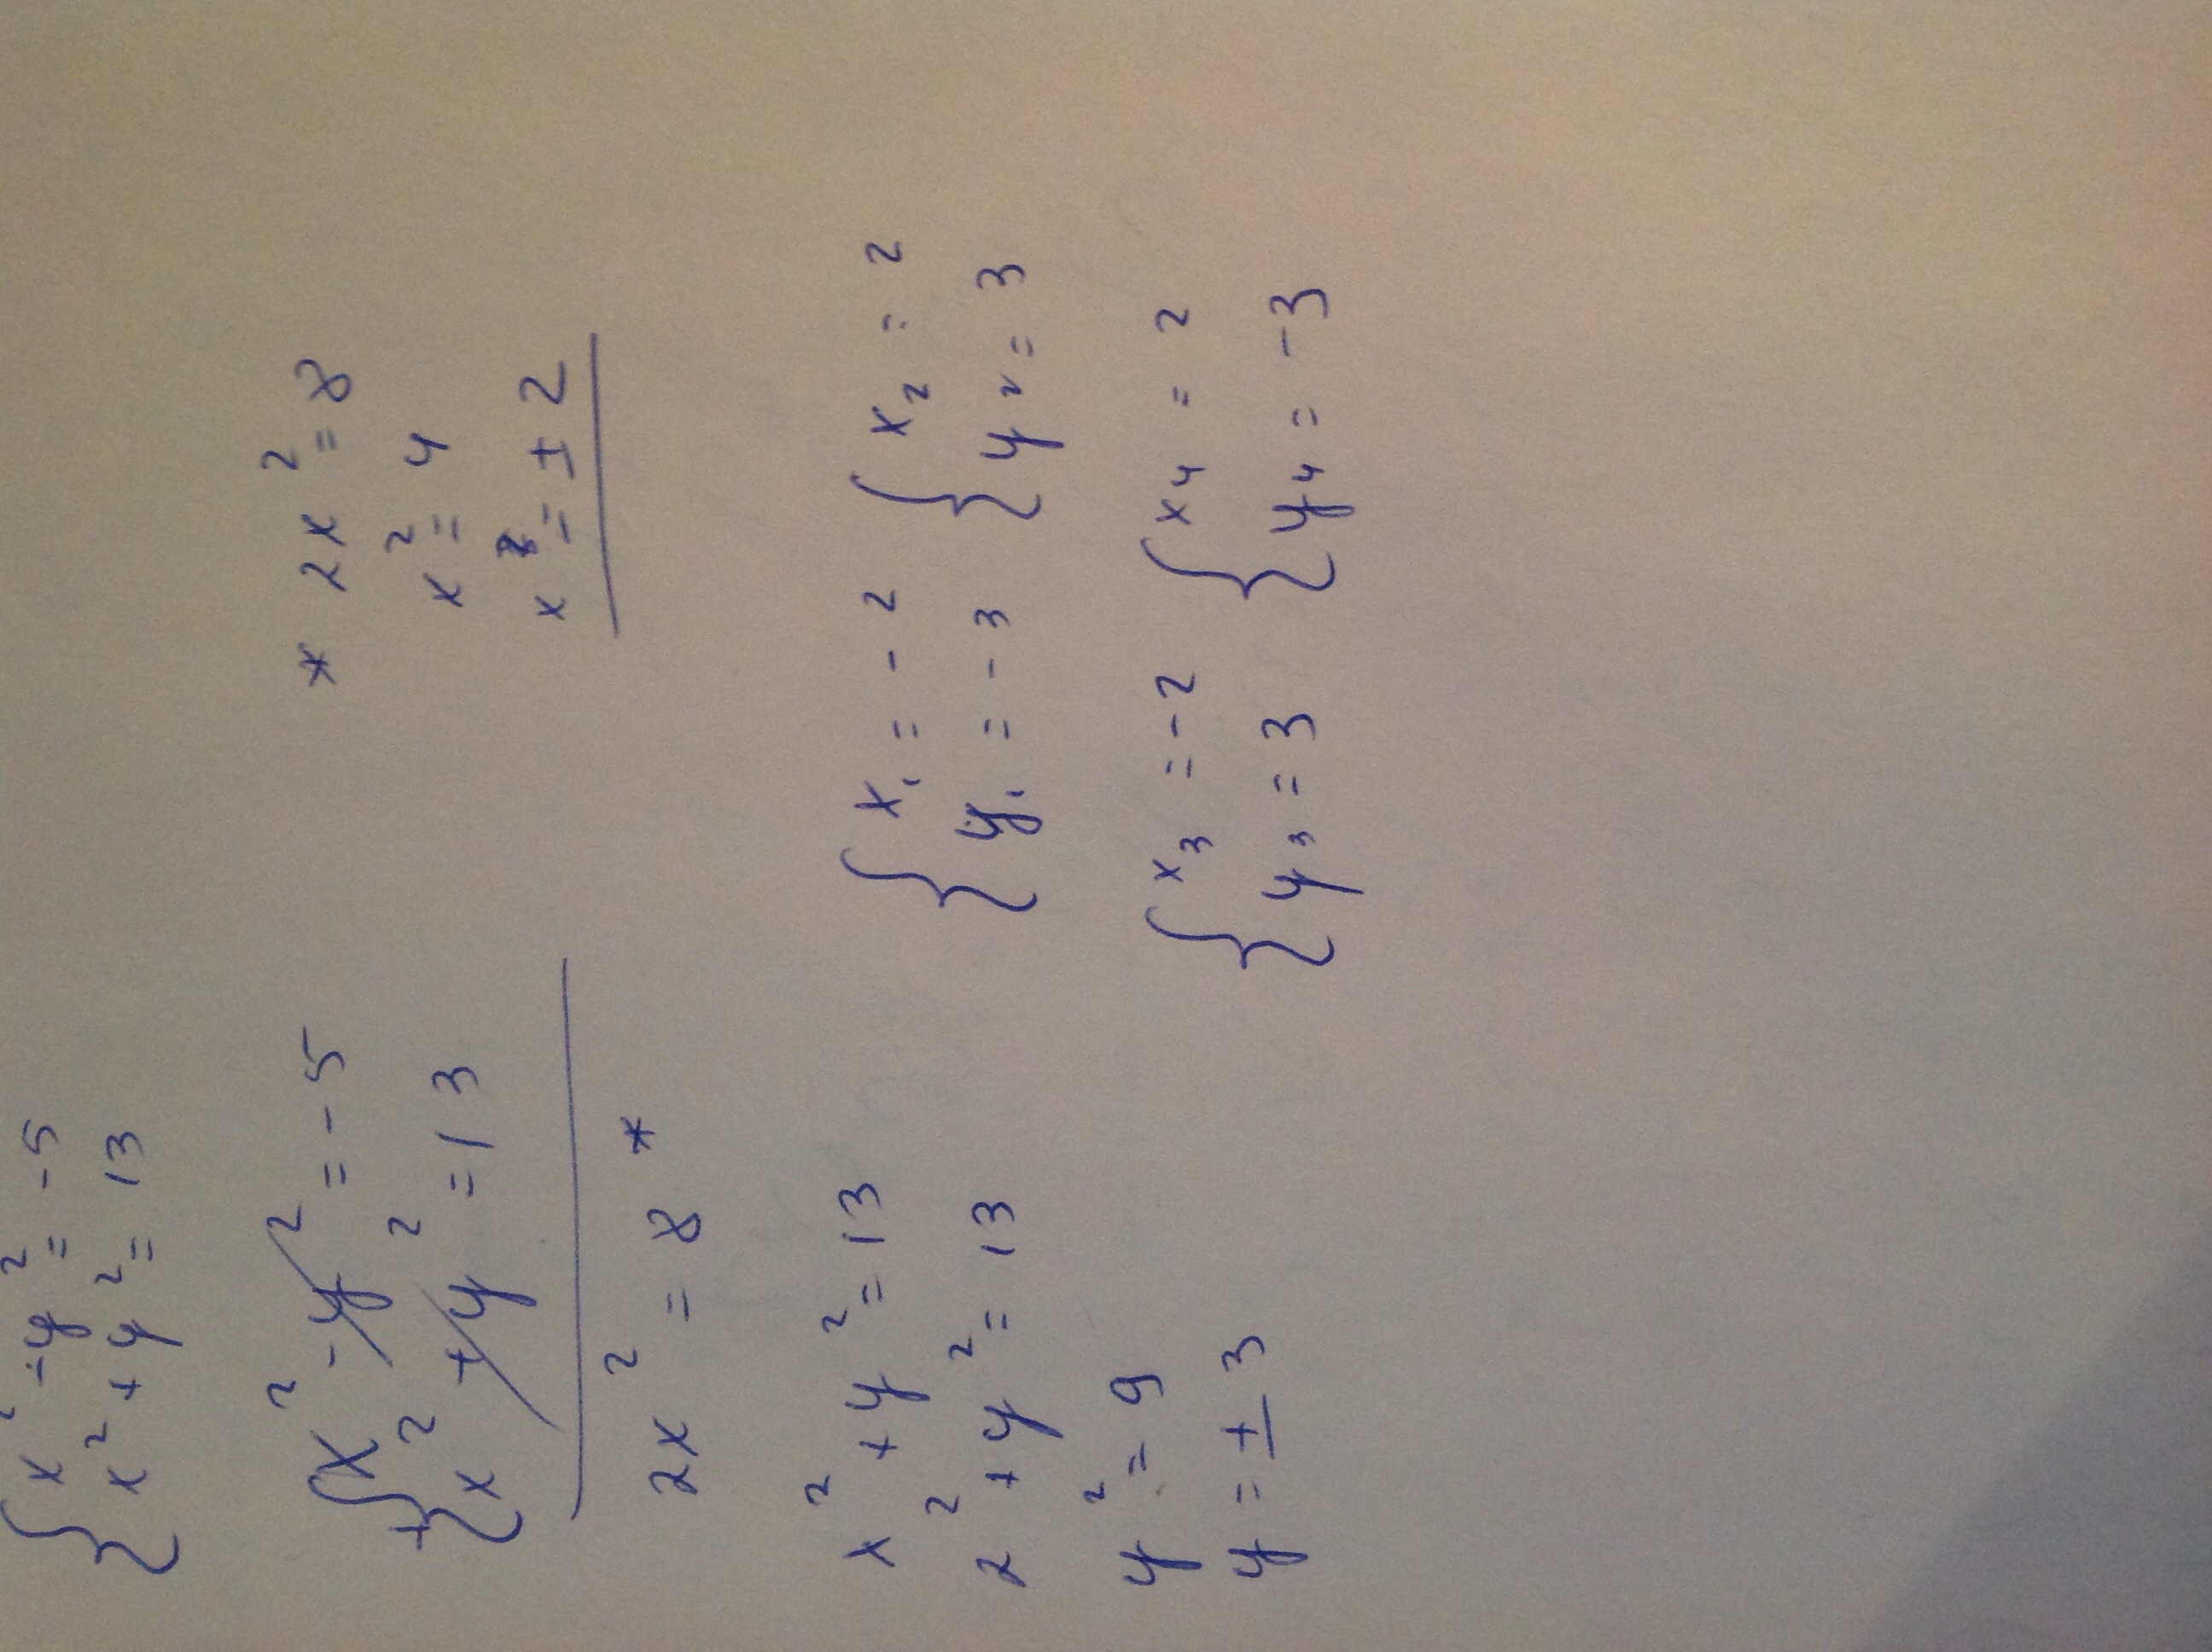 { x² - y² = -5
x² + y² = 13
+ { x² - y² = -5
x² + y² = 13
2x² = 8 *
x² + y² = 13
2² + y² = 13
y² = 9
y = ± 3
* 2x² = 8
x² = 4
x = ± 2
{ x₁ = -2
y₁ = -3
{ x₂ = 2
y₂ = 3
{ x₃ = -2
y₃ = 3
{ x₄ = 2
y₄ = -3